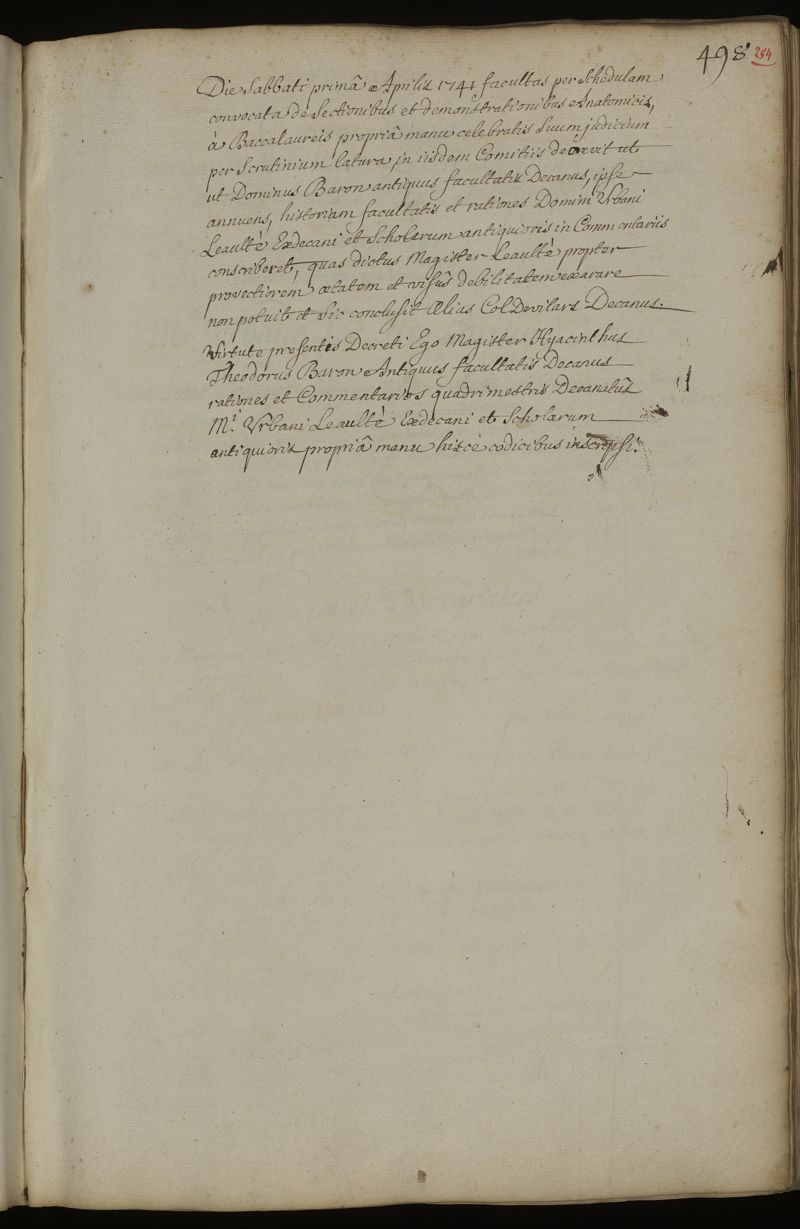 498 254
Die Sabbati primâ Aprilis 1741 facultas per schedulam
convocata de Sectionibus et demonstrationibus Anatomicis,
à Baccalaureis propriâ manu celebratis suum judicium
per Scrutinium latura in iisdem Comitiis decrevit ut
ut Dominus Baron antiquus facultatis Decanus, ipse
annuens, historiam facultatis et rationes Domini Urbani
Leaulté Exdecani et Scholarum antiquioris in Commentariis
conscriberet, quas dictus Magister Leaulté propter
provectiorem ætatem et visus debilitatem exarare
non potuit et sic conclusit Ælias Col Devilars Decanus.
Virtute presentis Decreti Ego Magister Hyacinthus
Theodorus Baron Antiquus facultatis Decanus
rationes et Commentarios quadrimestris Decanatus
Mi. Urbani Leaulté Exdecani et Scholarum
antiquioris propriâ manu hisce codicibus inscripsi.